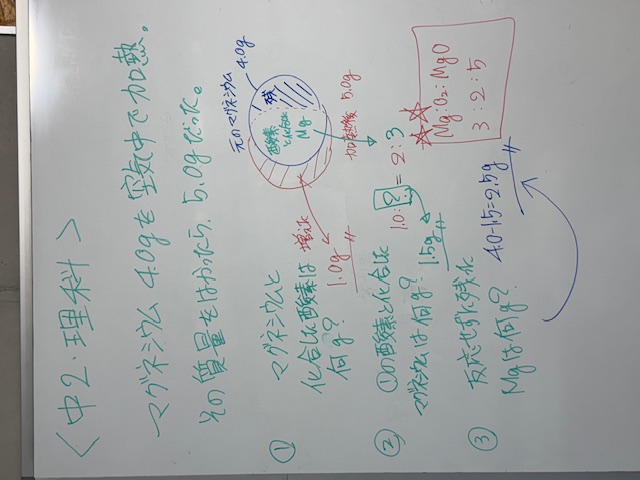 <中2・理科>
マグネシウム 4.0gを空気中で加熱。
その質量をはかったら、5.0gだった。
① マグネシウムと
化合した酸素は
何g?
増えた
1.0g
元のマグネシウム 4.0g
残
酸素
と化合した
Mg
加熱後 5.0g
② ①の酸素と化合した
マグネシウムは何g?
1.0:?=2:3
1.5g
☆☆
Mg:O₂:MgO
3:2:5
③ 反応せずに残った
Mgは何g?
4.0-1.5=2.5g